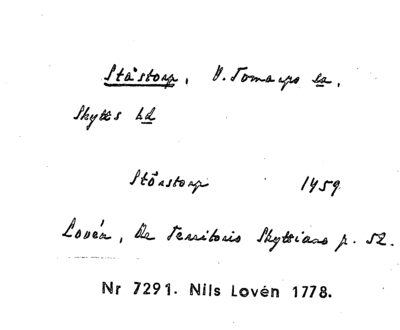 Ståstorp, V. Tomarps sn,
Skytts hd
Stårstorp 1459
Lovén, De Territorio Skyttiano p. 52.
Nr 7291. Nils Lovén 1778.